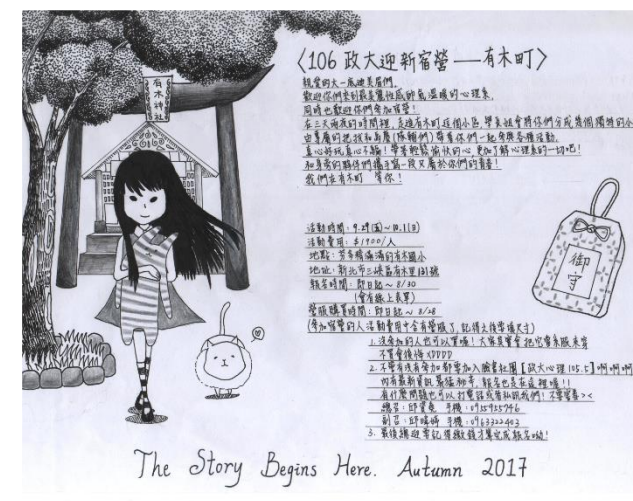 有木神社
〈106 政大迎新宿營——有木町〉
親愛的大一底迪美眉們,
歡迎你們來到最具靈性感即氣溫暖的心理系,
同時也歡迎你們參加宿營!
在三天兩夜的時間裡,走進有木町這個小區,學長姐會將你們分成幾個獨特的小
由專屬的把拔和馬麻(隊輔們)帶著你們一起參與各種活動,
真心好玩真心不騙!帶著輕鬆愉快的心 更加了解心理系的一切吧!
和身旁的夥伴們攜手寫一段只屬於你們的青春!
我們在有木町 等你!
御守
活動時間: 9.29(五)~10.1(日)
活動費用: $1900/人
地點: 芳香積滿滿的有木國小
地址: 新北市三峽區有木里131號
報名時間: 即日起~ 8/30
(會有線上表單)
營服購買時間: 即日起~ 8/28
(參加宿營的人活動費用中含有營服了,記得去後面填尺寸)
1. 沒參加的人也可以買哦!大家真實會把它當系服來穿
不買會後悔XDDDD
2. 不管有沒有參加都要加入臉書社團【政大心理105.5】啊啊啊
內有最新資訊最猛抑哥,報名也是在這裡哦!!
有什麼問題也可以打電話或者私訊我們!不要害羞><
總召: 邱 手機: 0915925946
副召: 邱 婷 手機: 0963322403
3. 最後請迎 記得繳錢才算完成報名呦!
The Story Begins Here. Autumn 2017